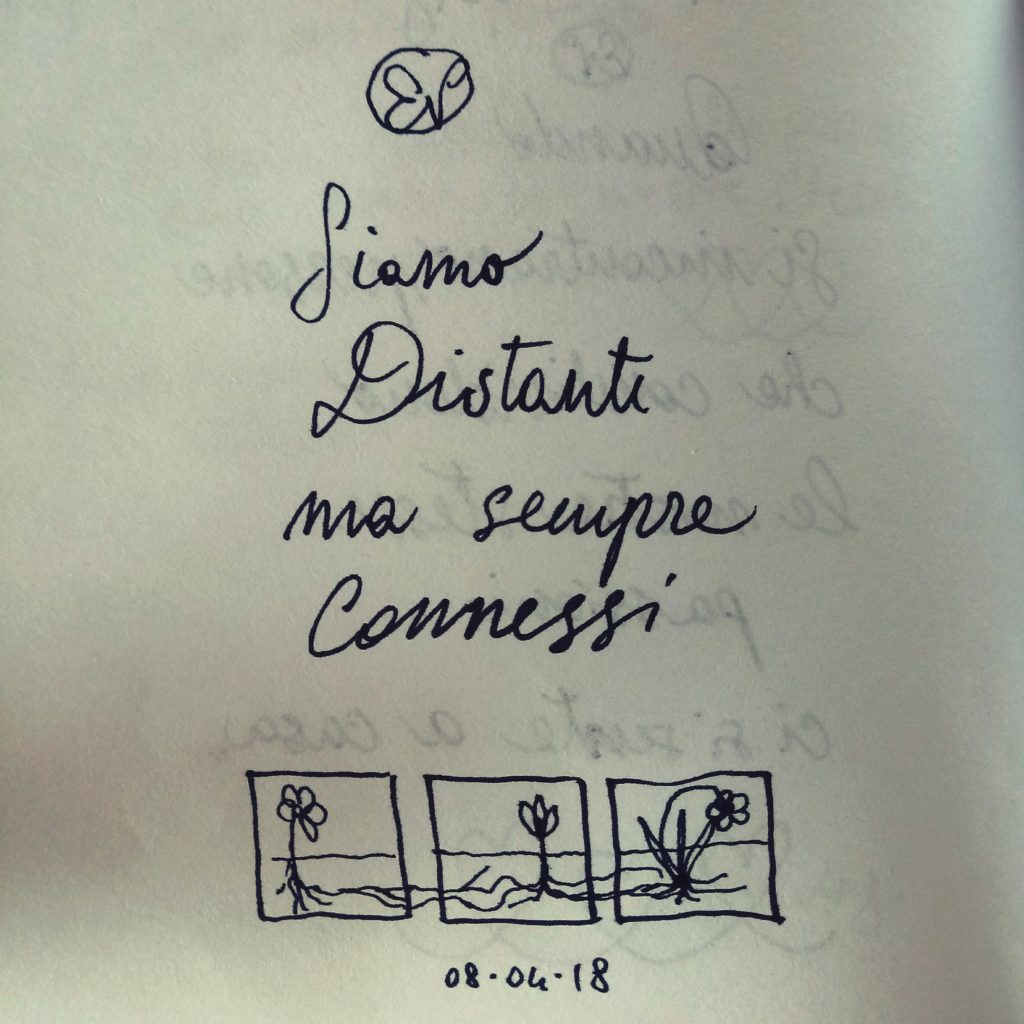 Siamo
Distanti
ma sempre
Connessi
08.04.18